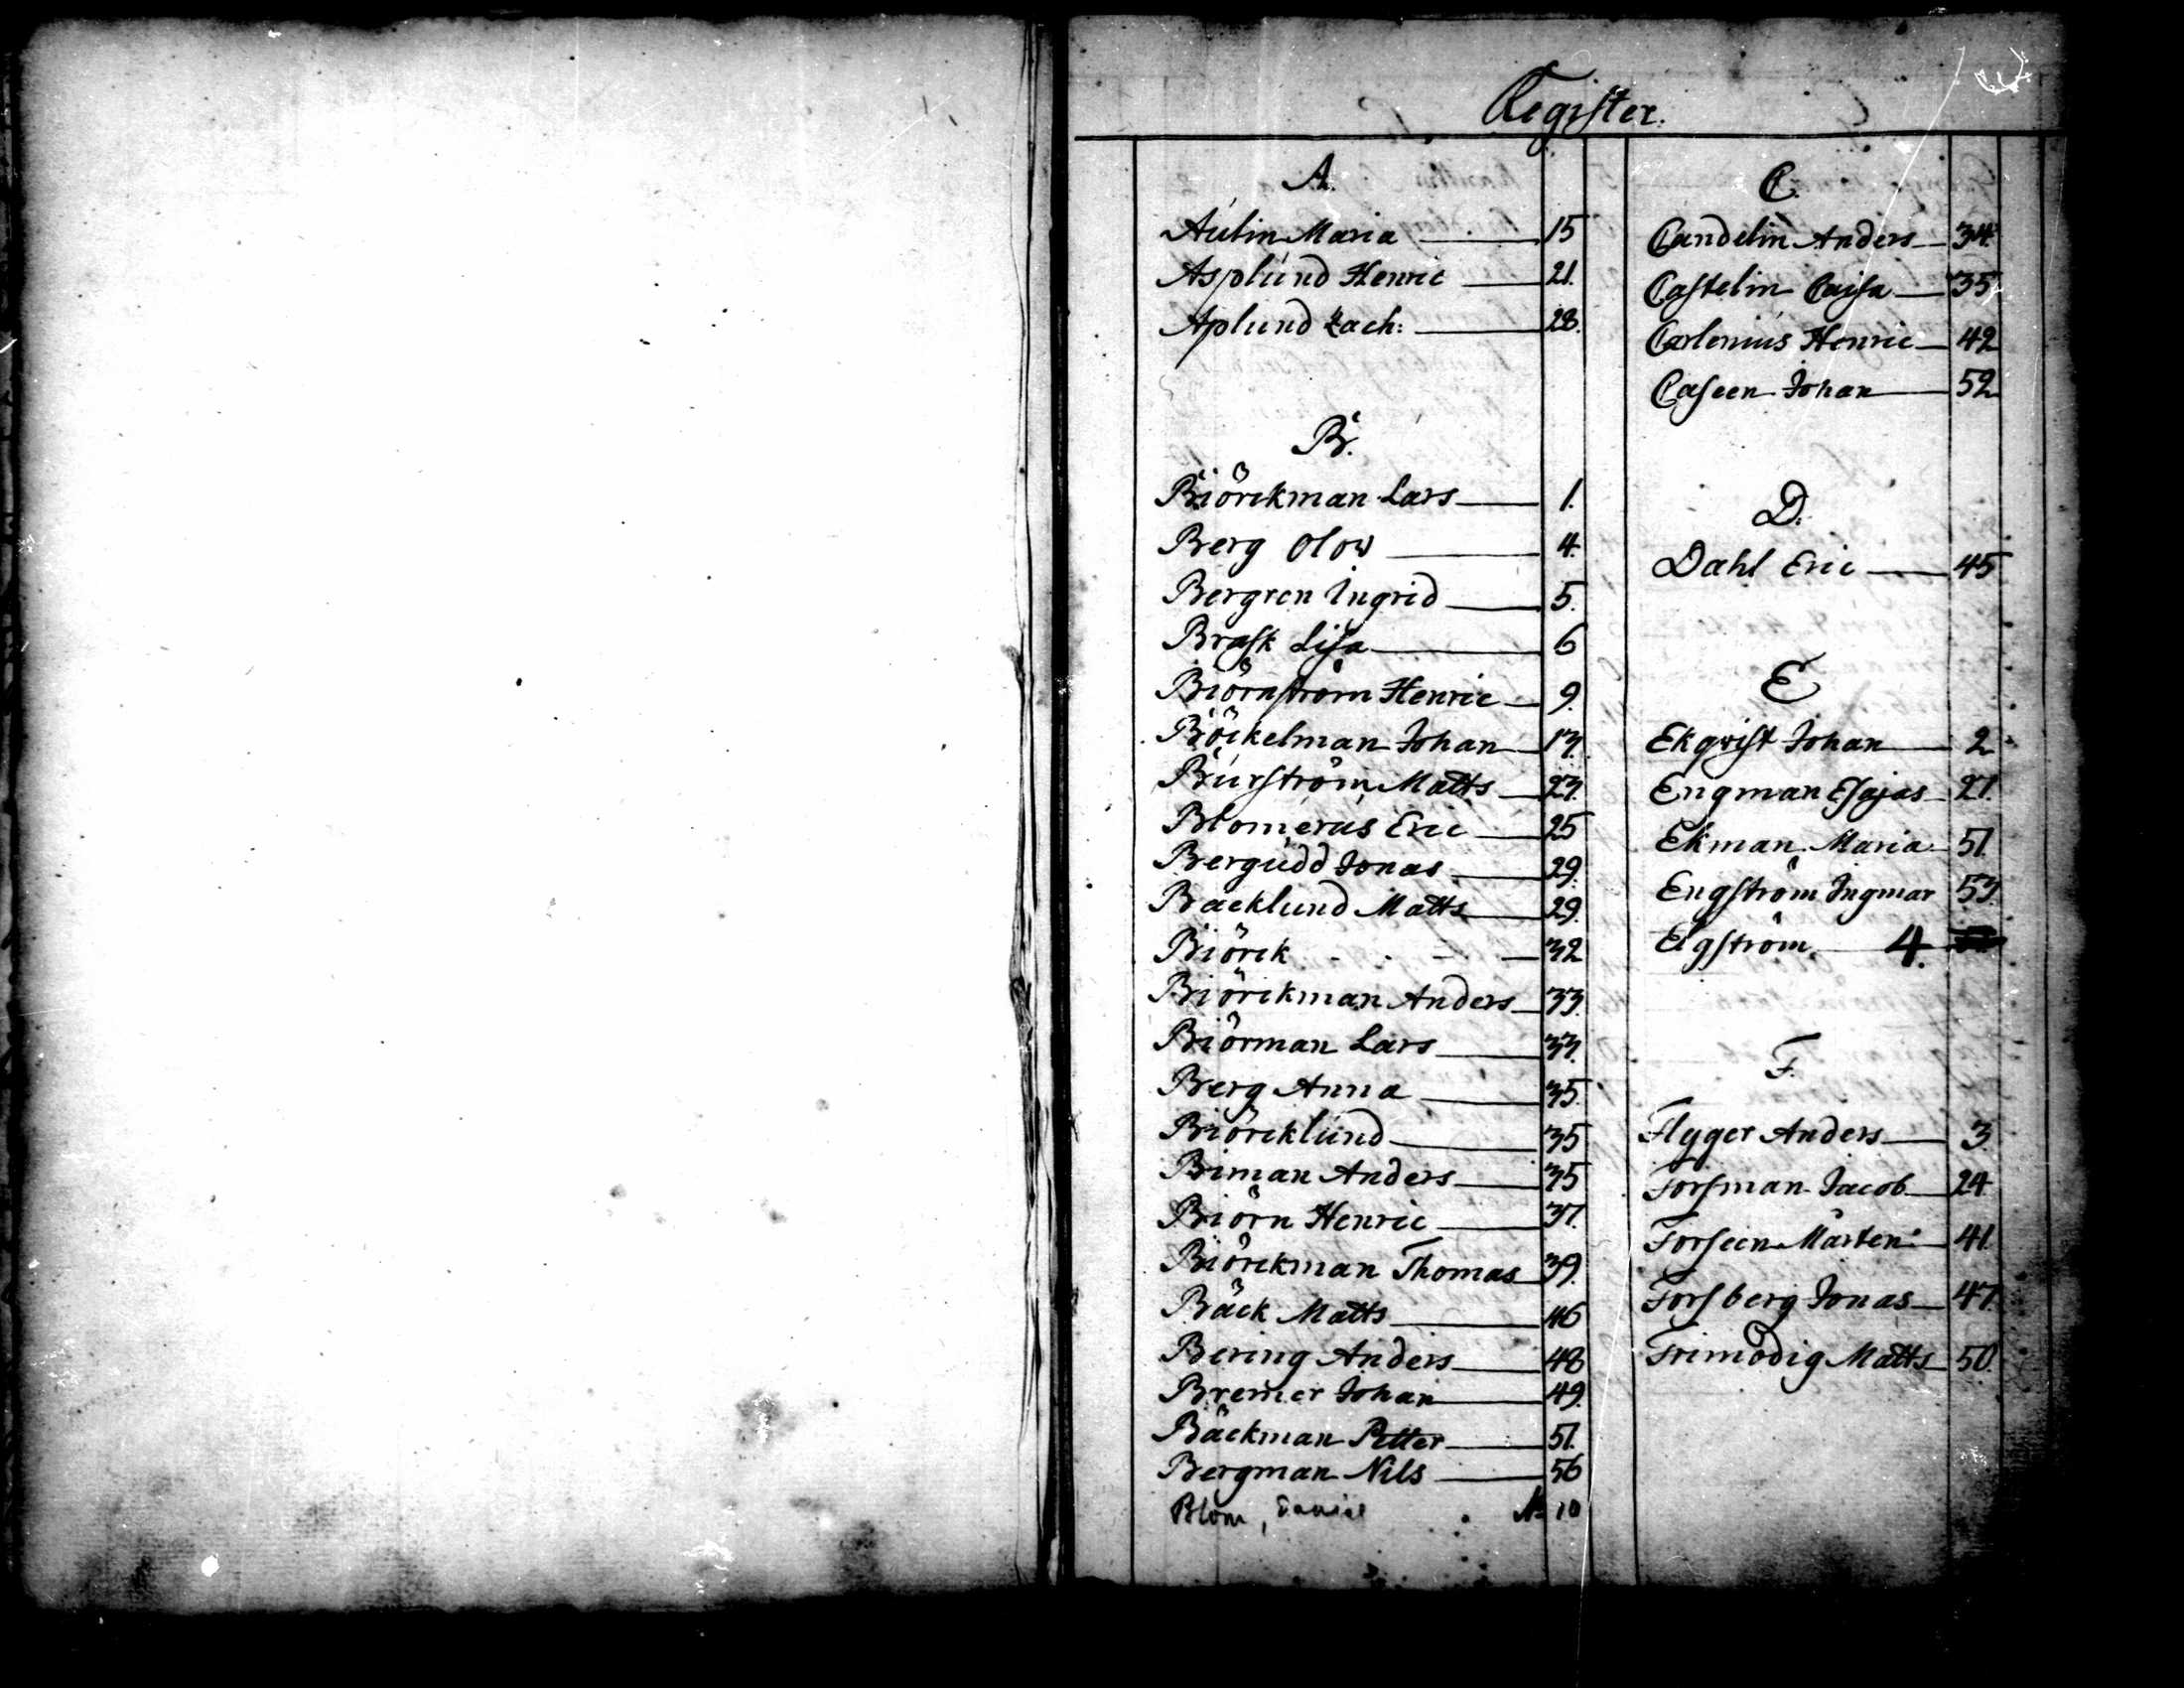 Register.
A.
Aulin Maria 15
Asplund Henric 21.
Aplund Zach: 28.
B.
Biörckman Lars 1.
Berg Olow 4.
Bergren Ingrid 5.
Brask Lisa 6
Biörnström Henric 9.
Böckelman Johan 13.
Burström Matts 23.
Blomerus Eric 25
Bergudd Jonas 29.
Backlund Matts 29.
Biörck 32
Biörckman Anders 33.
Biörman Lars 33.
Berg Anna 35.
Biörcklund 35
Biman Anders 35
Biörn Henric 37.
Biörckman Thomas 39.
Bäck Matts 46
Bering Anders 48
Bremer Johan 49.
Bäckman Petter 51.
Bergman Nils 56
Blom, Daniel N 10
C.
Candelin Anders 34.
Castelin Caisa 35
Carlenius Henric 42
Caseen Johan 52
D.
Dahl Eric 45
E
Ekqvist Johan 2
Engman Esajas 27.
Ekman Maria 51.
Engström Ingmar 53
Elgström 4.
F.
Flyger Anders 3.
Forsman Jacob 24
Forseen Mårten 41.
Forsberg Jonas 47.
Frimodig Matts 50.